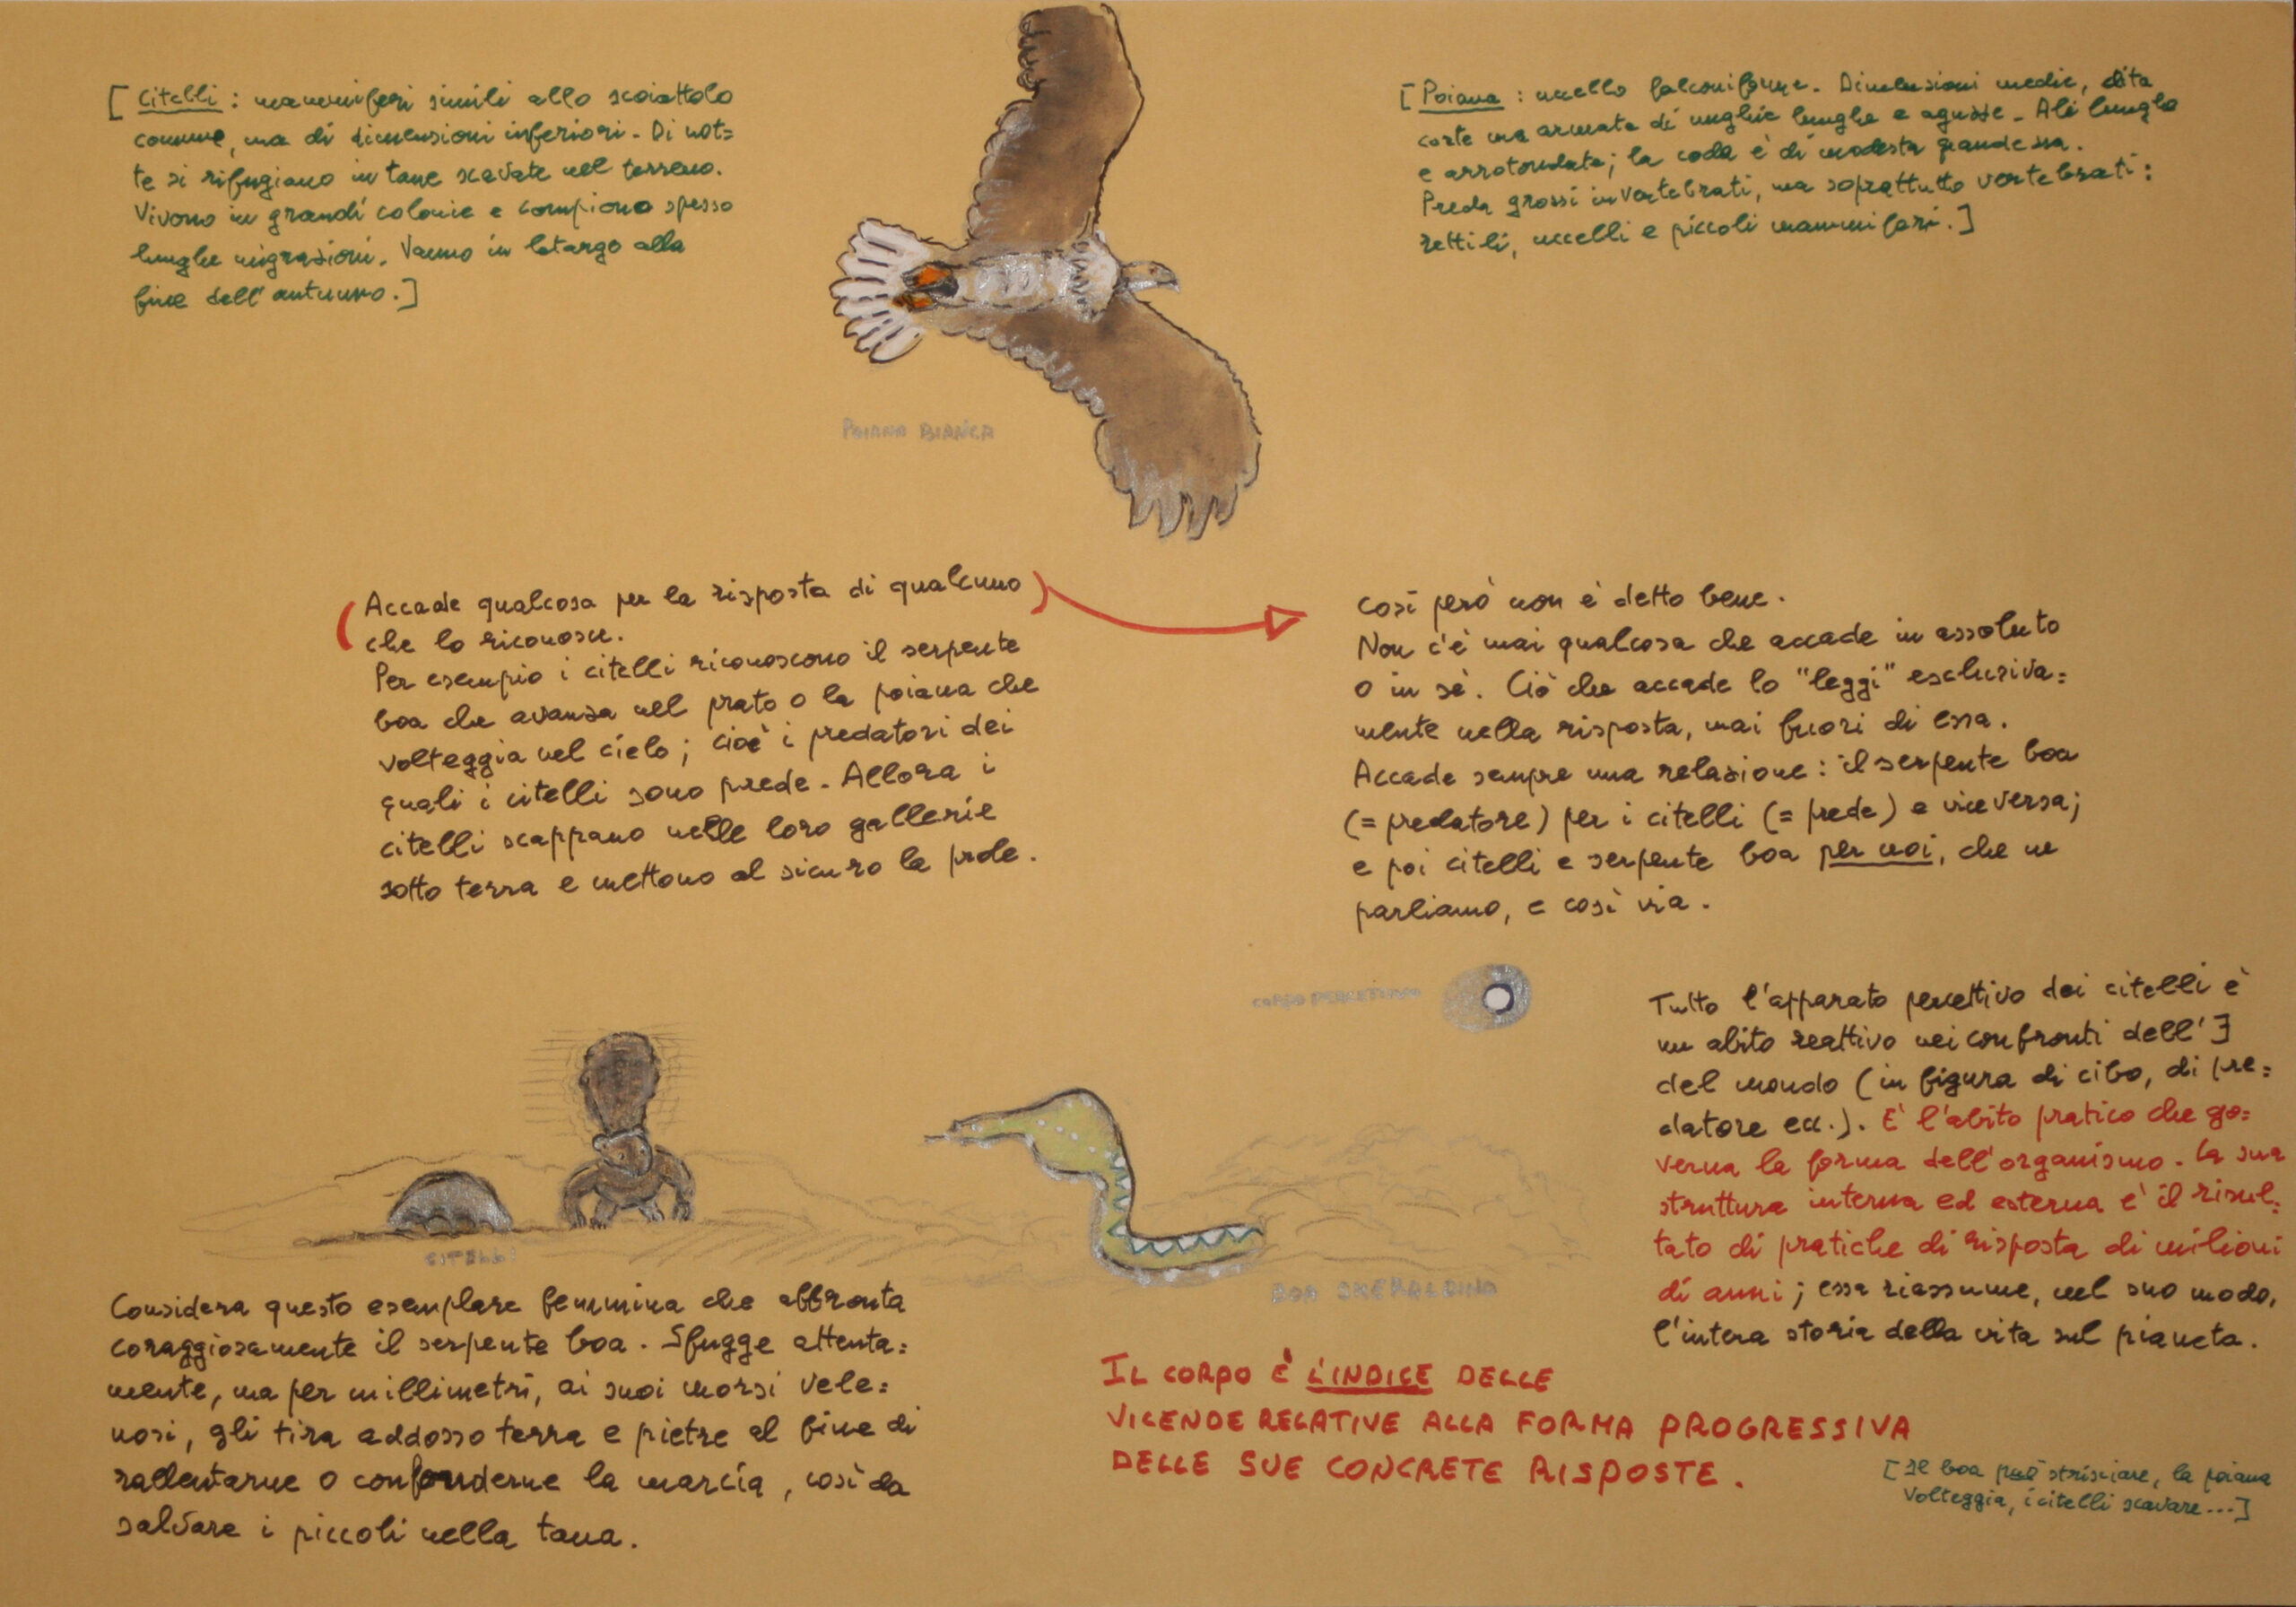 [ Citelli : mammiferi simili allo scoiattolo
comune, ma di dimensioni inferiori. Di not=
te si rifugiano in tane scavate nel terreno.
Vivono in grandi colonie e compiono spesso
lunghe migrazioni. Vanno in letargo alla
fine dell'autunno. ]
[ Poiana : uccello falconiforme. Dimensioni medie, dita
corte ma armate di unghie lunghe e aguzze. Ali lunghe
e arrotondate; la coda è di modesta grandezza.
Preda grossi invertebrati, ma soprattutto vertebrati:
rettili, uccelli e piccoli mammiferi. ]
POIANA BIANCA
(Accade qualcosa per la risposta di qualcuno)
che lo riconosce.
Per esempio i citelli riconoscono il serpente
boa che avanza nel prato o la poiana che
volteggia nel cielo; cioè i predatori dei
quali i citelli sono prede. Allora i
citelli scappano nelle loro gallerie
sotto terra e mettono al sicuro la prole.
Così però non è detto bene.
Non c'è mai qualcosa che accade in assoluto
o in sè. Ciò che accade lo "leggi" esclusiva=
mente nella risposta, mai fuori di essa.
Accade sempre una relazione: il serpente boa
(= predatore) per i citelli (= prede) e viceversa;
e poi citelli e serpente boa per noi, che ne
parliamo, e così via.
CORPO
Tutto l'apparato percettivo dei citelli è
un abito reattivo nei confronti dell'
del mondo (in figura di cibo, di pre=
datore ecc.). E' l'abito pratico che go=
verna la forma dell'organismo. La sua
struttura interna ed esterna è il risul=
tato di pratiche di risposta di milioni
di anni; essa riassume, nel suo modo,
l'intera storia della vita sul pianeta.
CITELLI
BOA SMERALDINO
Considera questo esemplare femmina che affronta
coraggiosamente il serpente boa. Sfugge attenta=
mente, ma per millimetri, ai suoi morsi vele=
nosi, gli tira addosso terra e pietre al fine di
rallentarne o confonderne la marcia, così da
salvare i piccoli nella tana.
IL CORPO È L'INDICE DELLE
VICENDE RELATIVE ALLA FORMA PROGRESSIVA
DELLE SUE CONCRETE RISPOSTE.
[ Il boa può strisciare, la poiana
volteggia, i citelli scavare... ]